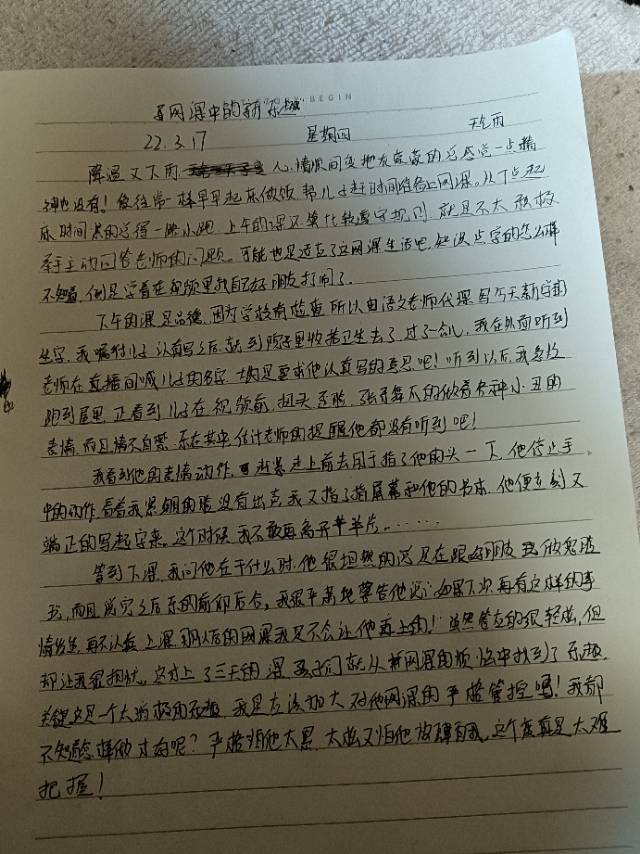 BEGIN
网课中的新"乐趣"
22.3.17 星期四 天气雨
降温又下雨 人心情瞬间变地灰蒙蒙的总感觉一点精
神也没有！像往常一样早早起床做饭 帮儿子赶时间准备上网课。从7点起
床时间 一路小跑 上午的课还算比较遵守规则 就是不太积极
举手主动回答老师的问题。可能也是适应了这网课生活吧，知识点学的怎么样
不知道，倒是学着在视频里和自己好朋友打闹了。
下午的课是品德，因为学校有检查 所以由语文老师代课 写今天新学的
生字，我嘱咐儿子认真写之后，就到院子里收拾卫生去了，过了一会儿，我在外面听到
老师在直播间喊儿子的名字，大概是要求他认真写的意思吧！听到以后，我急忙
跑到屋里，正看到儿子在视频前，扭头歪脸，张牙舞爪的做着各种小丑的
表情，而且情不自禁，乐在其中，估计老师的提醒他都没有听到吧！
我看到他的表情动作，赶紧走上前去用手指了他的头一下，他停止手
中的动作，看着我 的脸没有出声，我又指了指屏幕和他的书本，他便立刻又
端正的写起字来。这个时候，我不敢再离开半步……
等到下课，我问他在干什么时，他很坦然的说是在跟好朋友 做鬼脸
我，而且说完之后乐的前仰后合，我很严肃地警告他说："如果下次再有这样的事
情发生，再不认真上课，那以后的网课我是不会让他再上的！"虽然答应的很轻松，但
却让我很担忧。这才上了三天的课 孩子们就从新网课的烦恼中找到了乐趣，
关键这是一个大消极的乐趣，我是应该加大对他网课的严格管控吗！我都
不知道怎样做才好呢？严格怕他太累 太松又怕他放飞自我，这个度真是太难
把握！